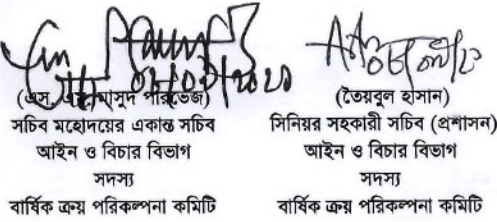 (এস, এম, মাসুদ পারভেজ)
সচিব মহোদয়ের একান্ত সচিব
আইন ও বিচার বিভাগ
সদস্য
বার্ষিক ক্রয় পরিকল্পনা কমিটি
(তৈয়বুল হাসান)
সিনিয়র সহকারী সচিব (প্রশাসন)
আইন ও বিচার বিভাগ
সদস্য
বার্ষিক ক্রয় পরিকল্পনা কমিটি